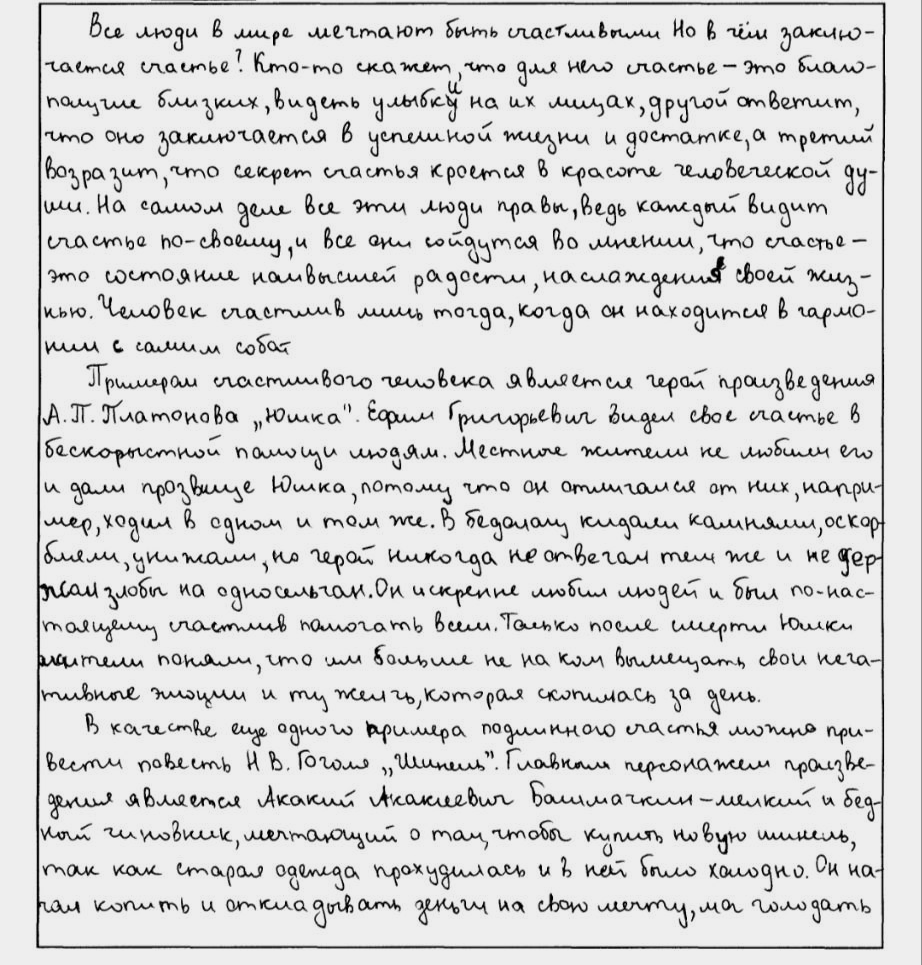 Все люди в мире мечтают быть счастливыми Но в чём заклю-
чается счастье? Кто-то скажет, что для него счастье – это благо-
получие близких, видеть улыбки на их лицах, другой ответит,
что оно заключается в успешной жизни и достатке, а третий
возразит, что секрет счастья кроется в красоте человеческой ду-
ши. На самом деле все эти люди правы, ведь каждый видит
счастье по-своему, и все они сойдутся во мнении, что счастье –
это состояние наивысшей радости, наслаждения своей жиз-
нью. Человек счастлив лишь тогда, когда он находится в гармо-
нии с самим собой
Примером счастливого человека является герой произведения
А.П. Платонова „Юшка". Ефим Григорьевич видел свое счастье в
бескорыстной помощи людям. Местные жители не любили его
и дали прозвище Юшка, потому что он отличался от них, напри-
мер, ходил в одном и том же. В бедолагу кидали камнями, оскор-
бляли, унижали, но герой никогда не отвечал тем же и не дер-
жал злобы на односельчан. Он искренне любил людей и был по-нас-
тоящему счастлив помогать всем. Только после смерти Юшки
жители поняли, что им больше не на ком вымещать свои нега-
тивные эмоции и ту желчь, которая скопилась за день.
В качестве еще одного примера подлинного счастья можно при-
вести повесть Н В. Гоголя „Шинель". Главным персонажем произве-
дения является Акакий Акакиевич Башмачкин – мелкий и бед-
ный чиновник, мечтающий о том, чтобы купить новую шинель,
так как старая одежда прохудилась и в ней было холодно. Он на-
чал копить и откладывать деньги на свою мечту, мог голодать